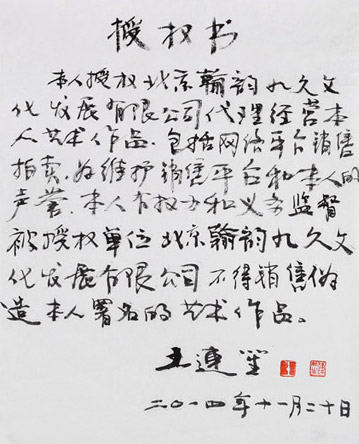 授权书
本人授权北京翰韵九久文
化发展有限公司代理经营本
人艺术作品.包括网络平台销售
拍卖.为维护销售平台和本人的
声誉.本人有权力和义务监督
被授权单位北京翰韵九久文
化发展有限公司不得销售伪
造本人署名的艺术作品。
王连笙
二〇一四年十一月二十日